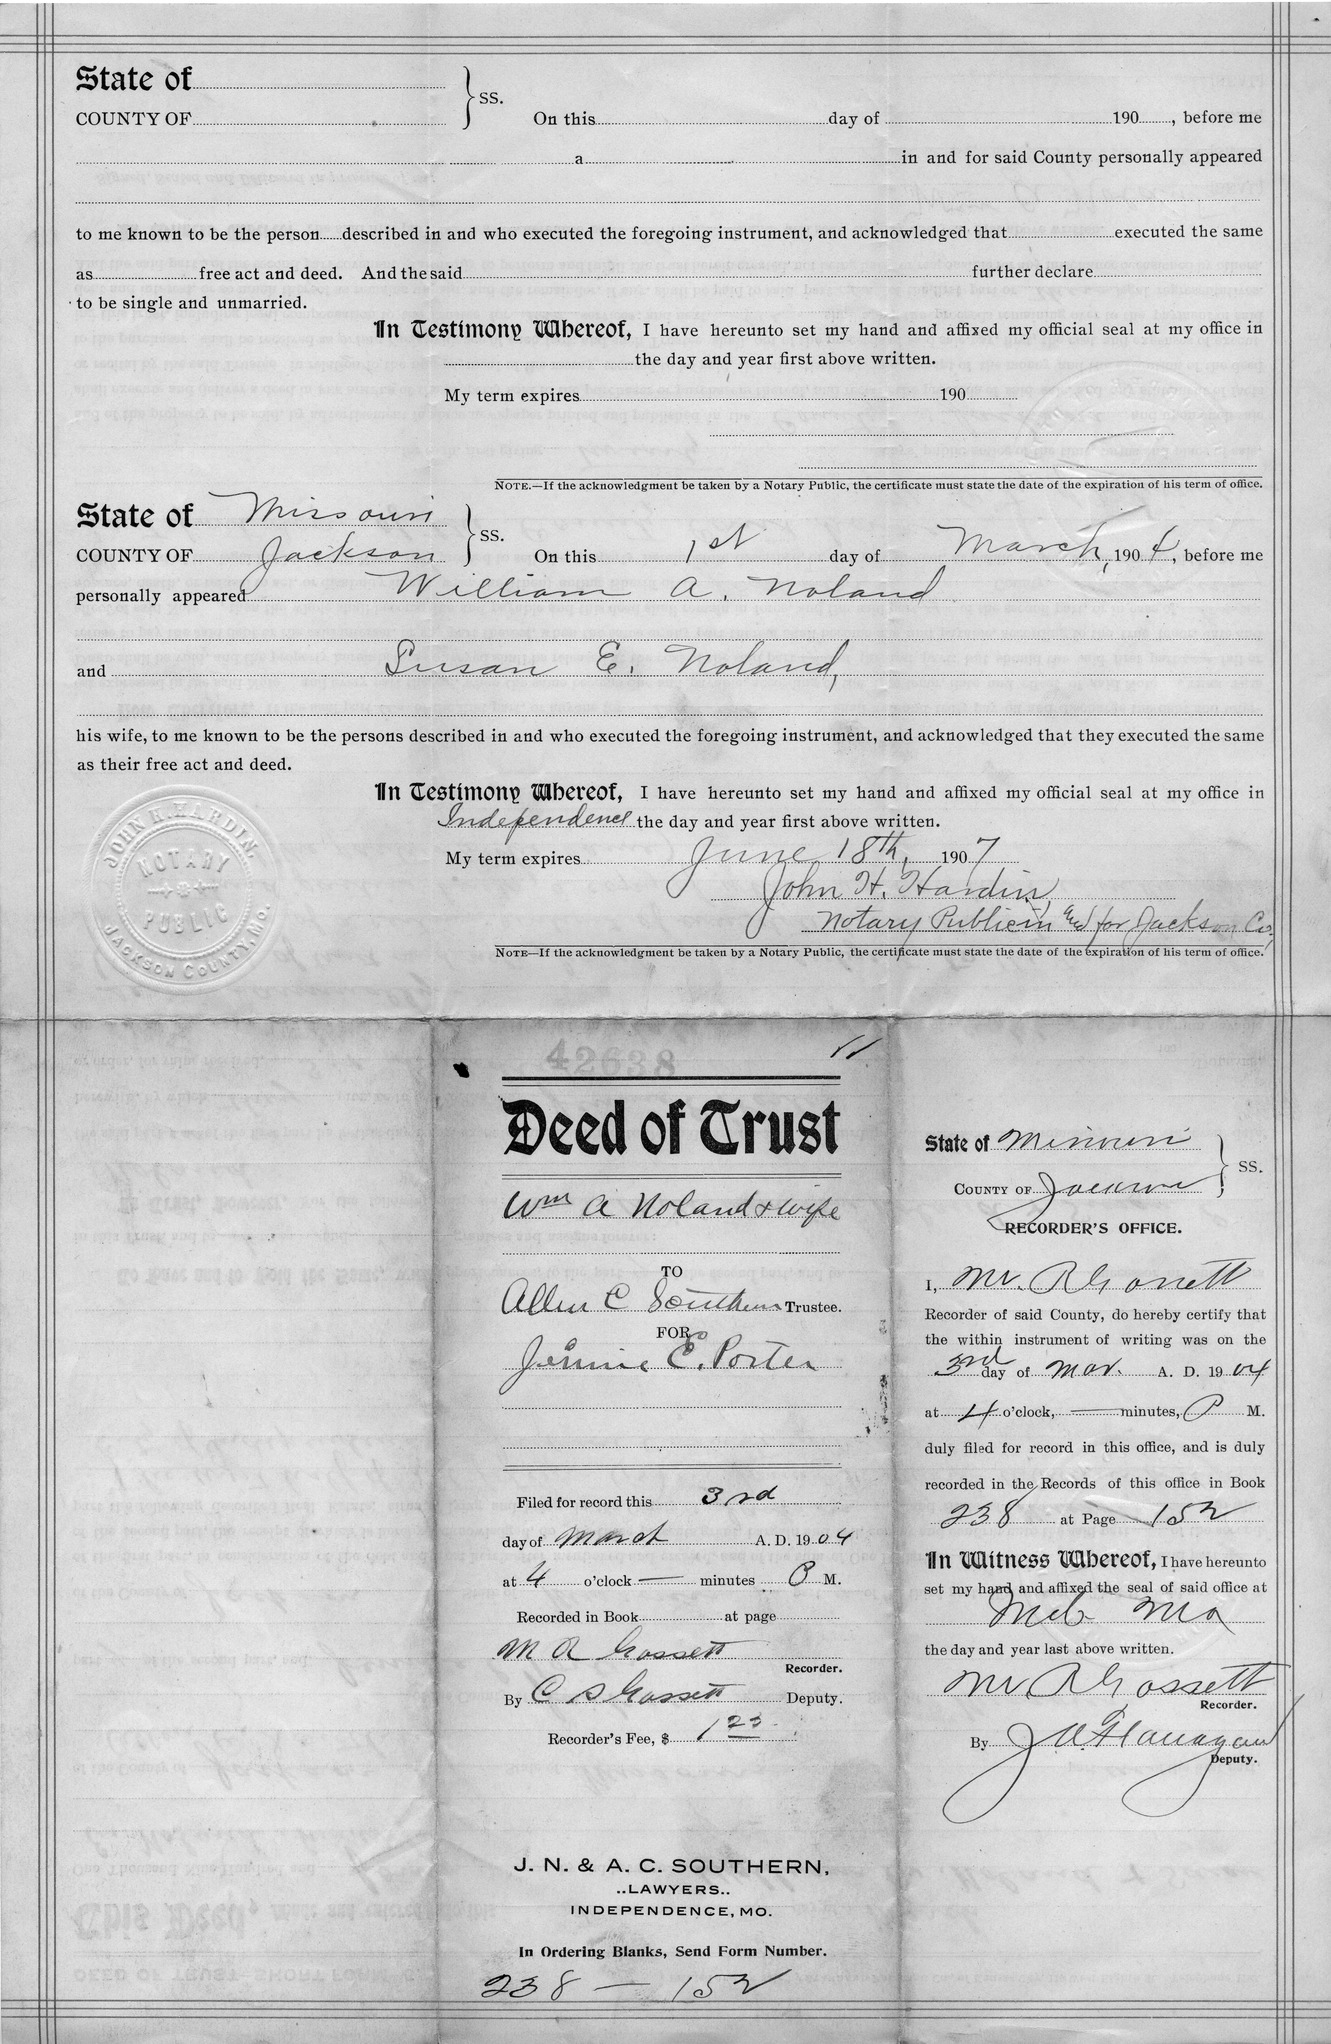 State of
COUNTY OF
SS.
On this day of 190 , before me
a in and for said County personally appeared
to me known to be the person described in and who executed the foregoing instrument, and acknowledged that executed the same
as free act and deed. And the said further declare
to be single and unmarried.
In Testimony Whereof, I have hereunto set my hand and affixed my official seal at my office in
the day and year first above written.
My term expires 190
NOTE.—If the acknowledgment be taken by a Notary Public, the certificate must state the date of the expiration of his term of office.
State of Missouri
COUNTY OF Jackson
SS.
On this 1st day of March, 1904, before me
personally appeared William A. Noland
and Susan E. Noland,
his wife, to me known to be the persons described in and who executed the foregoing instrument, and acknowledged that they executed the same
as their free act and deed.
In Testimony Whereof, I have hereunto set my hand and affixed my official seal at my office in
Independence the day and year first above written.
My term expires June 18th, 1907
John H. Hardin,
Notary Public in and for Jackson Co,
NOTE—If the acknowledgment be taken by a Notary Public, the certificate must state the date of the expiration of his term of office.
JOHN H. HARDIN.
NOTARY
PUBLIC
JACKSON COUNTY, MO.
42638
11
Deed of Trust
Wm A Noland & wife
TO
Allen C Southern Trustee.
FOR
Jennie E. Porter
Filed for record this 3rd
day of March A. D. 1904
at 4 o'clock — minutes P M.
Recorded in Book at page
M R Gossett
Recorder.
By C S Gossett Deputy.
Recorder's Fee, $ 1 25
J. N. & A. C. SOUTHERN,
..LAWYERS..
INDEPENDENCE, MO.
In Ordering Blanks, Send Form Number.
238 — 152
State of Missouri
COUNTY OF Jackson
SS.
RECORDER'S OFFICE.
I, M R Gossett
Recorder of said County, do hereby certify that
the within instrument of writing was on the
3rd day of Mar. A. D. 1904
at 4 o'clock, — minutes, P M.
duly filed for record in this office, and is duly
recorded in the Records of this office in Book
238 at Page 152
In Witness Whereof, I have hereunto
set my hand and affixed the seal of said office at
Mo
the day and year last above written.
M R Gossett
Recorder.
By J A Flanagan
Deputy.